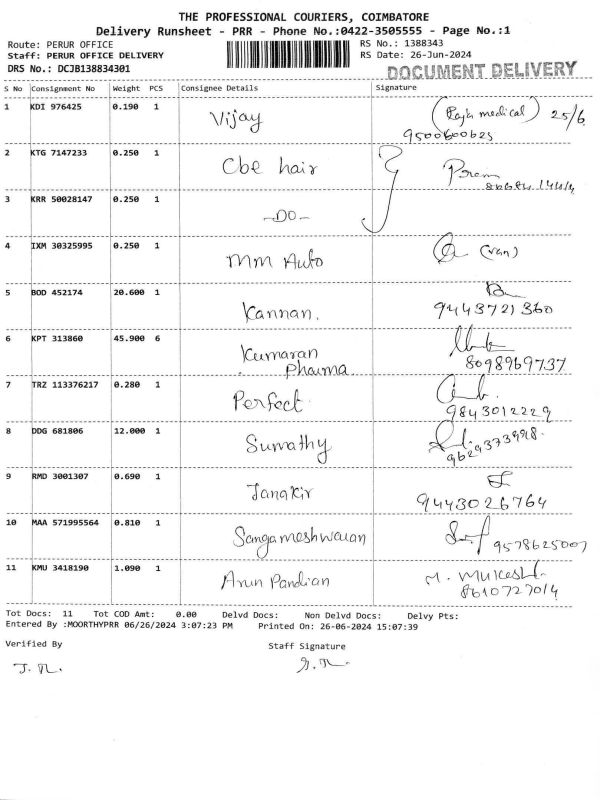 THE PROFESSIONAL COURIERS, COIMBATORE
Delivery Runsheet - PRR - Phone No.:0422-3505555 - Page No.:1
Route: PERUR OFFICE RS No.: 1388343
Staff: PERUR OFFICE DELIVERY RS Date: 26-Jun-2024
DRS No.: DCJB138834301 DOCUMENT DELIVERY
S No Consignment No Weight PCS Consignee Details Signature
1 KDI 976425 0.190 1 Vijay (Rajh medical) 25/6
9500600625
2 KTG 7147233 0.250 1 Cbe hair Prem
3 KRR 50028147 0.250 1 -DO-
4 IXM 30325995 0.250 1 MM Auto (van)
5 BOD 452174 20.600 1 Kannan. 9443721360
6 KPT 313860 45.900 6 Kumaran
Pharma 8098969737
7 TRZ 113376217 0.280 1 Perfect 9843012229
8 DDG 681806 12.000 1 Sumathy 9629373998
9 RMD 3001307 0.690 1 Janakir 9443026764
10 MAA 571995564 0.810 1 Sangameshwaran 9578625007
11 KMU 3418190 1.090 1 Arun Pandian M. Mukesh
8610727014
Tot Docs: 11 Tot COD Amt: 0.00 Delvd Docs: Non Delvd Docs: Delvy Pts:
Entered By :MOORTHYPRR 06/26/2024 3:07:23 PM Printed On: 26-06-2024 15:07:39
Verified By Staff Signature